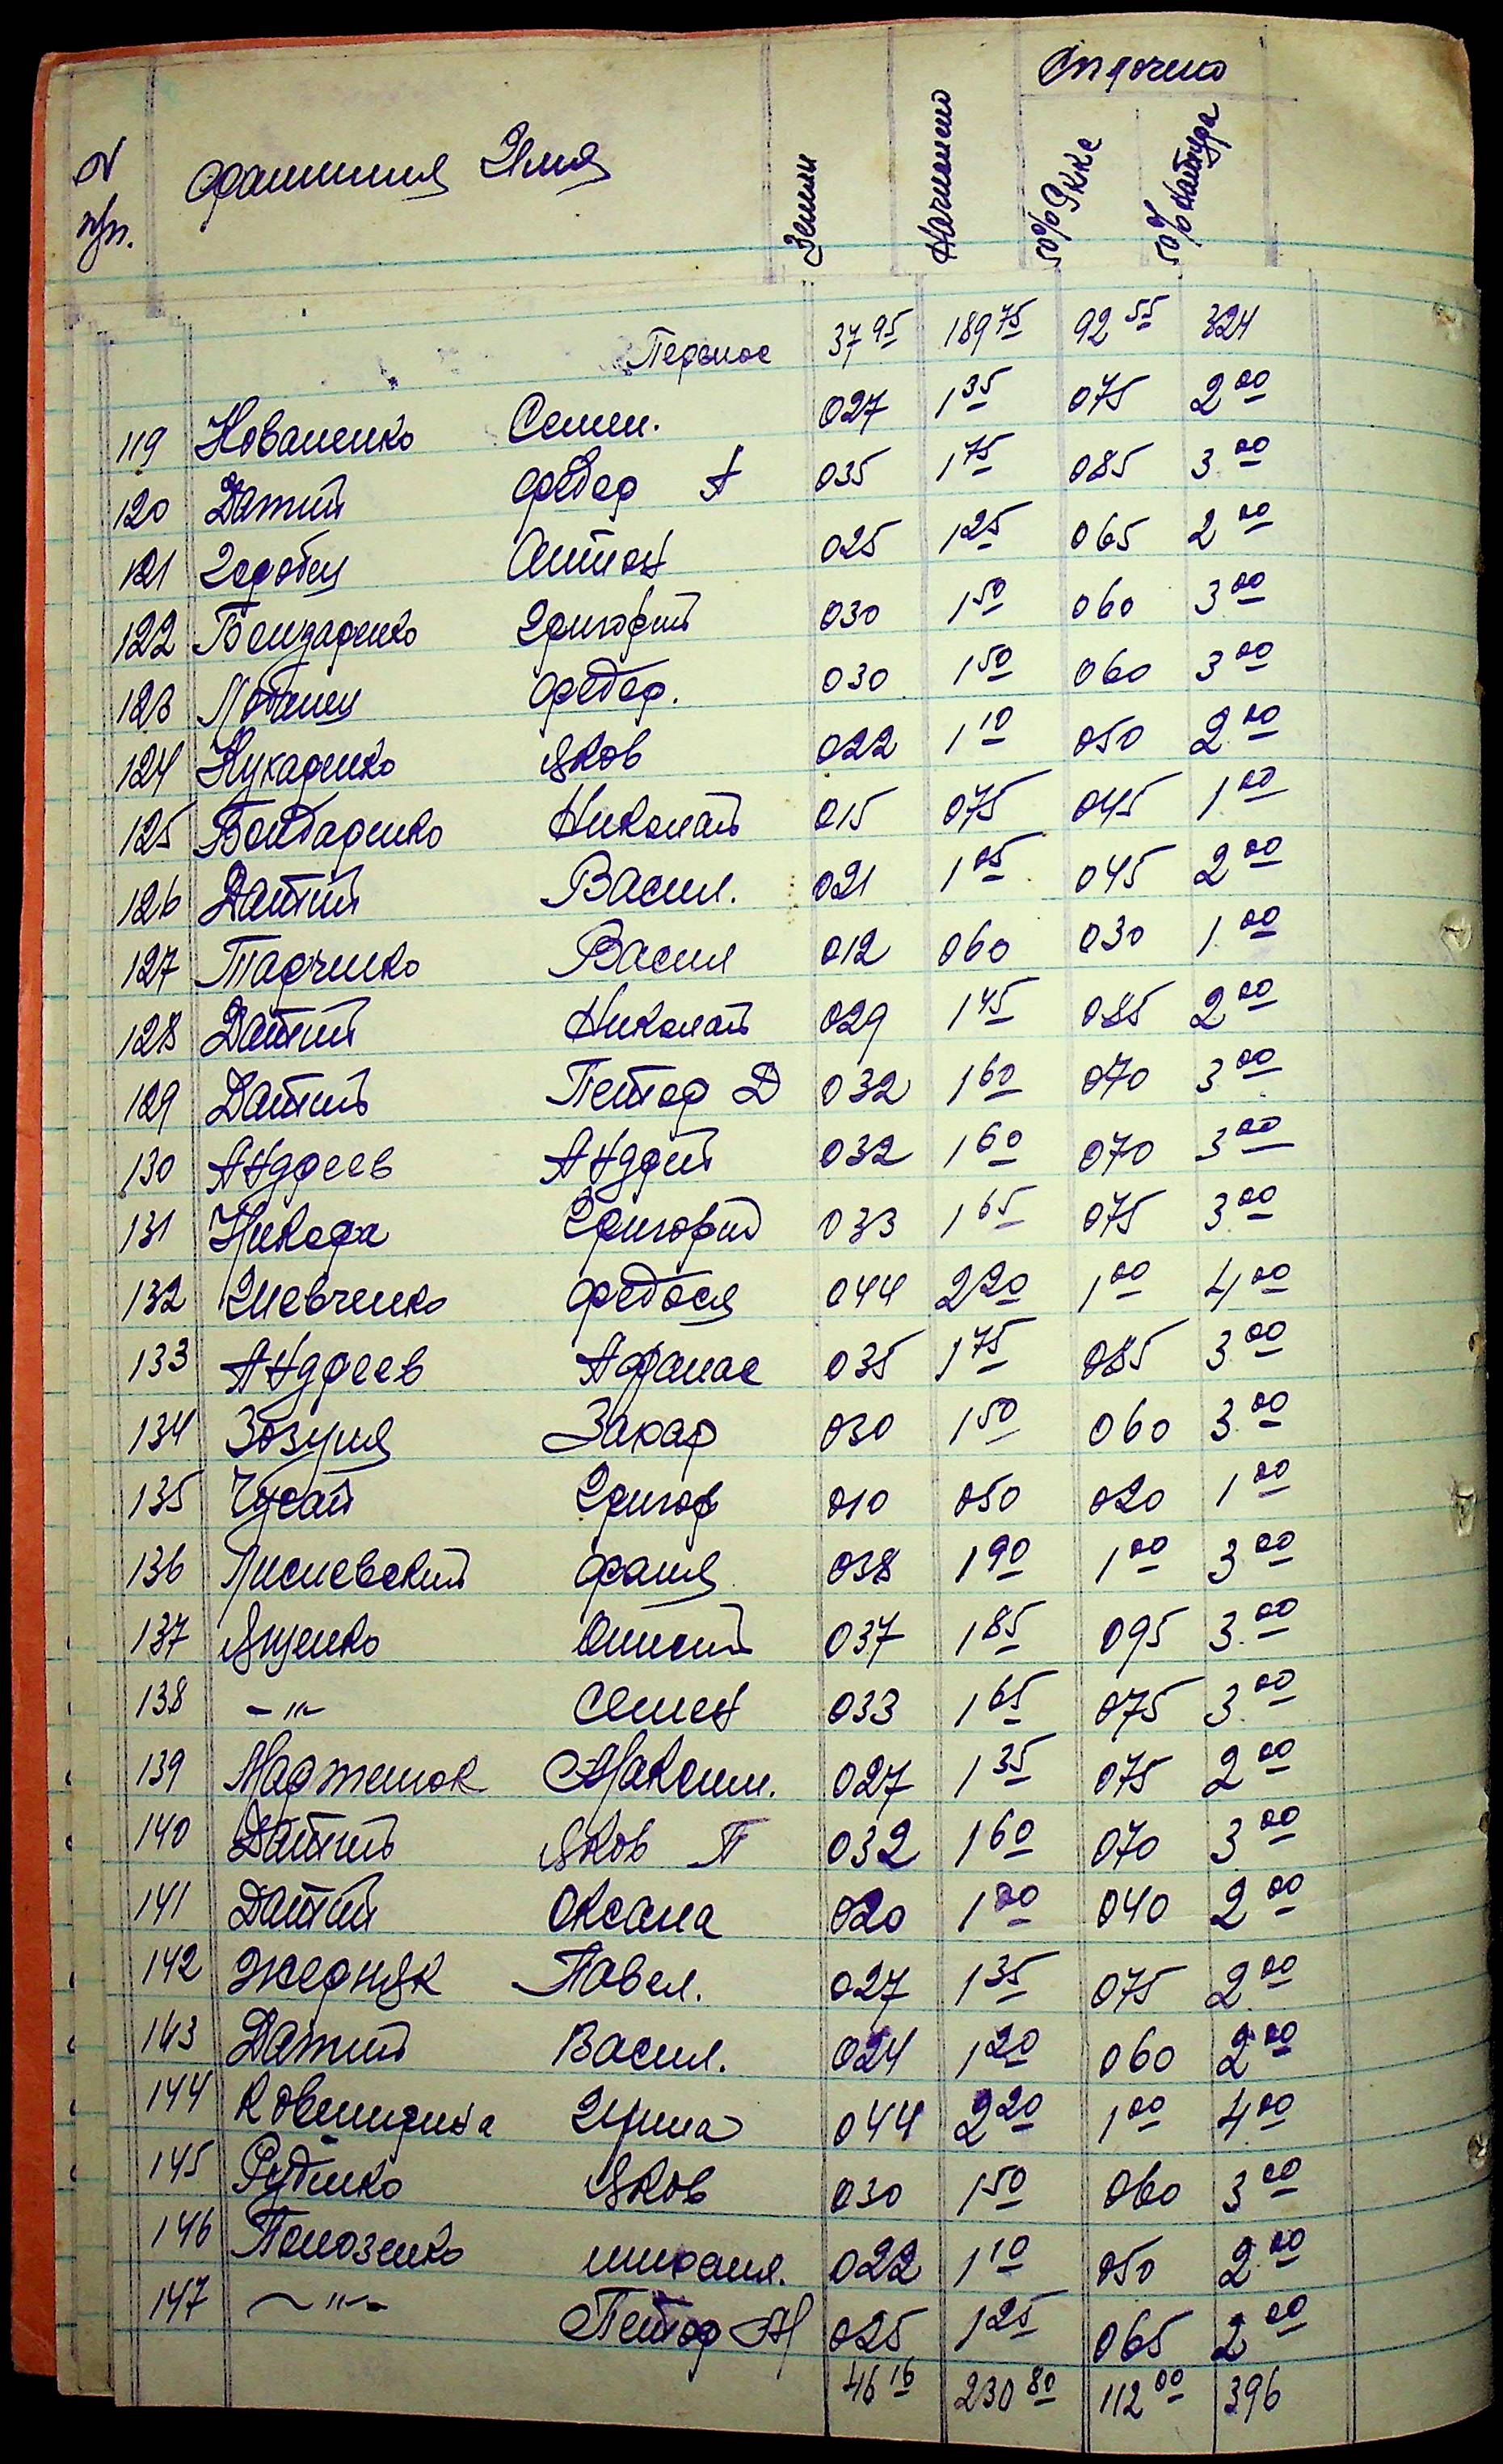 N п/п. Фамилия Имя Земли Начислено Оплочено
50% Рккс 50% Натура
Перенос 37 95 189 75 92 55 324
119 Коваленко Семен. 027 1 35 075 2 00
120 Датий Федор А 035 1 75 085 3 00
121 Горобец Антон 025 1 25 065 2 00
122 Григорий 030 1 50 060 3 00
123 Лобанец Федор. 030 1 50 060 3 00
124 Кухаренко Яков 022 1 10 050 2 00
125 Бондаренко Николай 015 075 045 1 00
126 Датий Васил. 021 1 05 045 2 00
127 Тарченко Васил 012 060 030 1 00
128 Датий Николай 029 1 45 085 2 00
129 Датий Петор Д 032 1 60 070 3 00
130 Андреев Андрей 032 1 60 070 3 00
131 Григорий 033 1 65 075 3 00
132 Шевченко Федося 044 2 20 1 00 4 00
133 Андреев Афанас 035 1 75 085 3 00
134 Зозуля Захар 030 1 50 060 3 00
135 Григор 010 050 020 1 00
136 Лисневский Фаня 038 1 90 1 00 3 00
137 Яценко 037 1 85 095 3 00
138 -"- Семен 033 1 65 075 3 00
139 Мартенюк Максим. 027 1 35 075 2 00
140 Датий Яков П 032 1 60 070 3 00
141 Датий Оксана 020 1 00 040 2 00
142 Жерняк Павел. 027 1 35 075 2 00
143 Датий Васил. 024 1 20 060 2 00
144 Ирина 044 2 20 1 00 4 00
145 Руденко Яков 030 1 50 060 3 00
146 михаил. 022 1 10 050 2 00
147 -"- Петор 025 1 25 065 2 00
46 16 230 80 112 00 396